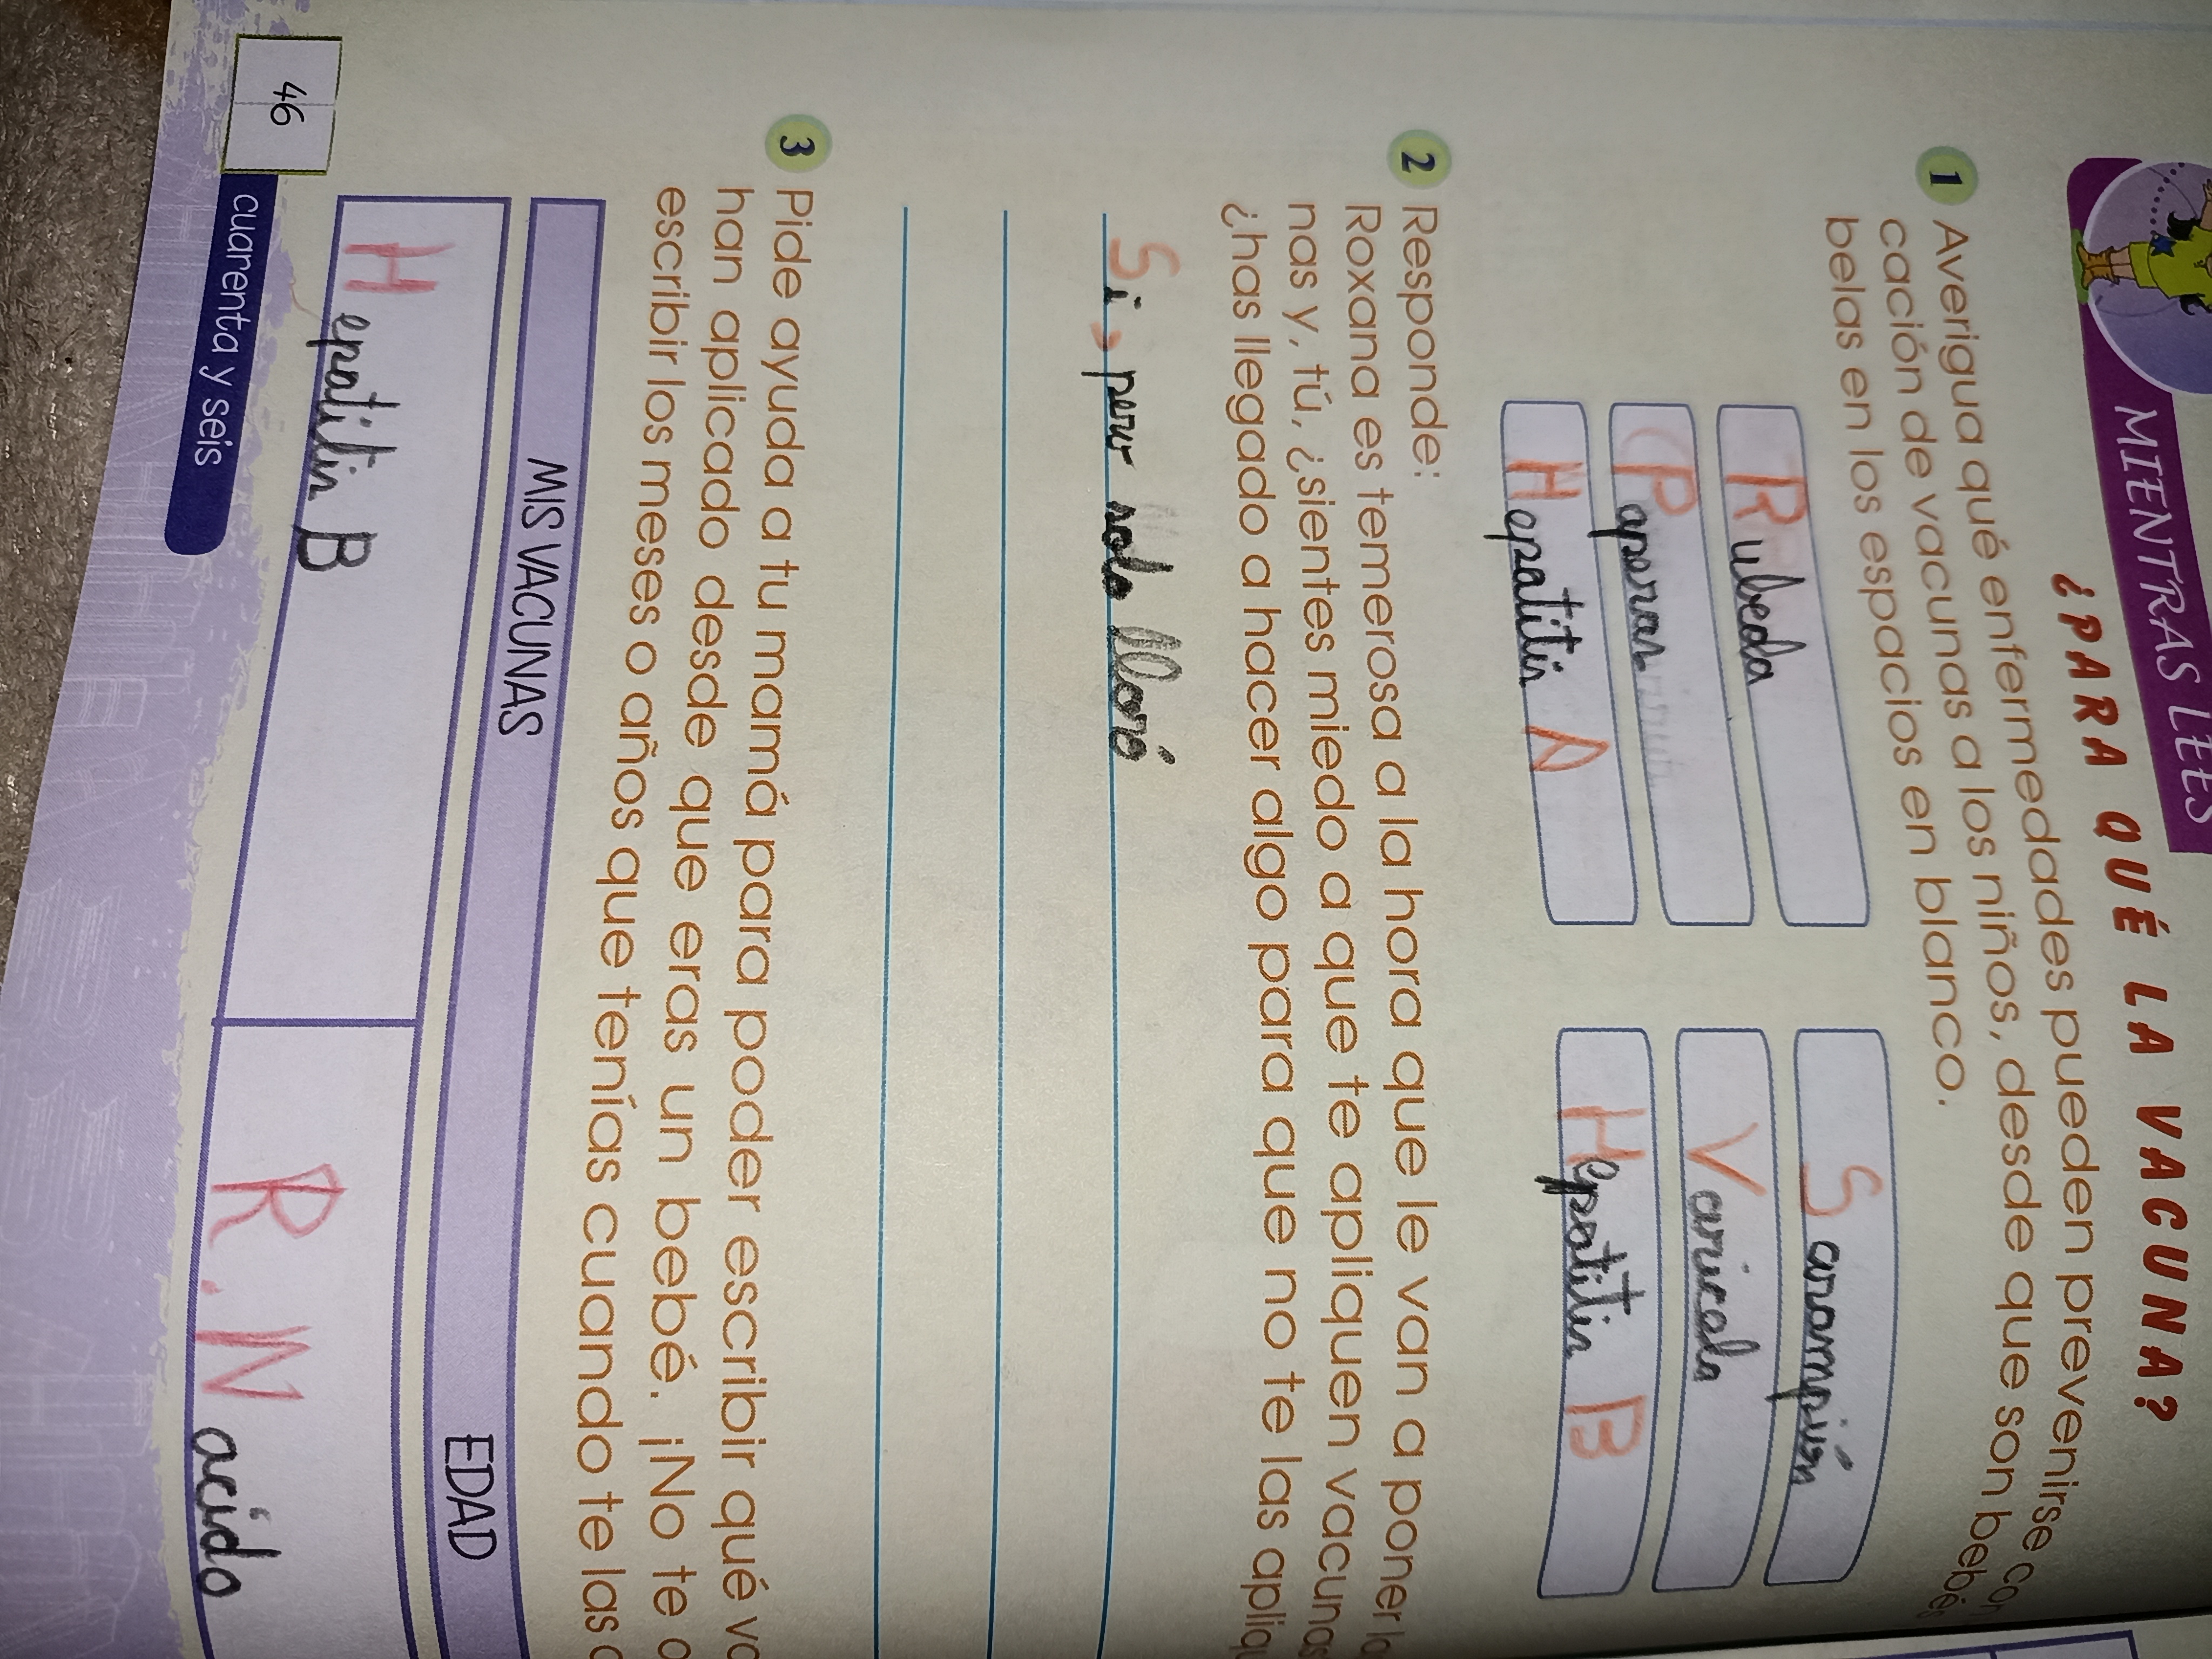 MIENTRAS LEES
¿PARA QUÉ LA VACUNA?
1 Averigua qué enfermedades pueden prevenirse con
cación de vacunas a los niños, desde que son bebés
belas en los espacios en blanco.
Rubeola Sarampión
Paperas Varicela
Hepatitis A Hepatitis B
2 Responde:
Roxana es temerosa a la hora que le van a poner la
nas y, tú, ¿sientes miedo a que te apliquen vacunas
¿has llegado a hacer algo para que no te las apliqu
Si, pero solo lloré
3 Pide ayuda a tu mamá para poder escribir qué va
han aplicado desde que eras un bebé. ¡No te o
escribir los meses o años que tenías cuando te las a
MIS VACUNAS EDAD
Hepatitis B R.Nacido
46 cuarenta y seis